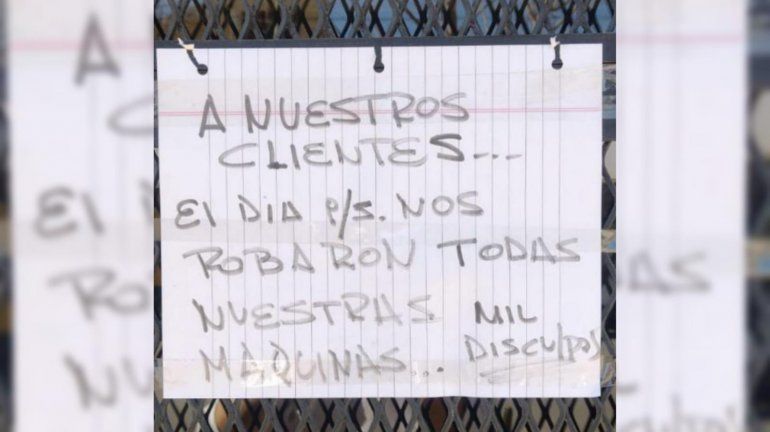 A NUESTROS
CLIENTES...
El DIA P/S. NOS
ROBARON TODAS
NUESTRAS MIL
MAQUINAS... DISCUlPAS